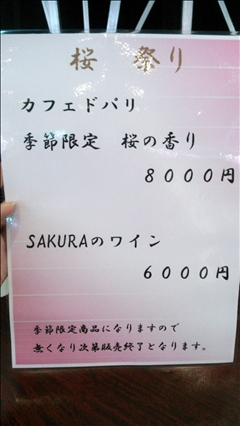 桜　祭り
カフェドパリ
季節限定　桜の香り
８０００円
SAKURAのワイン
６０００円
季節限定商品になりますので
無くなり次第販売終了となります。